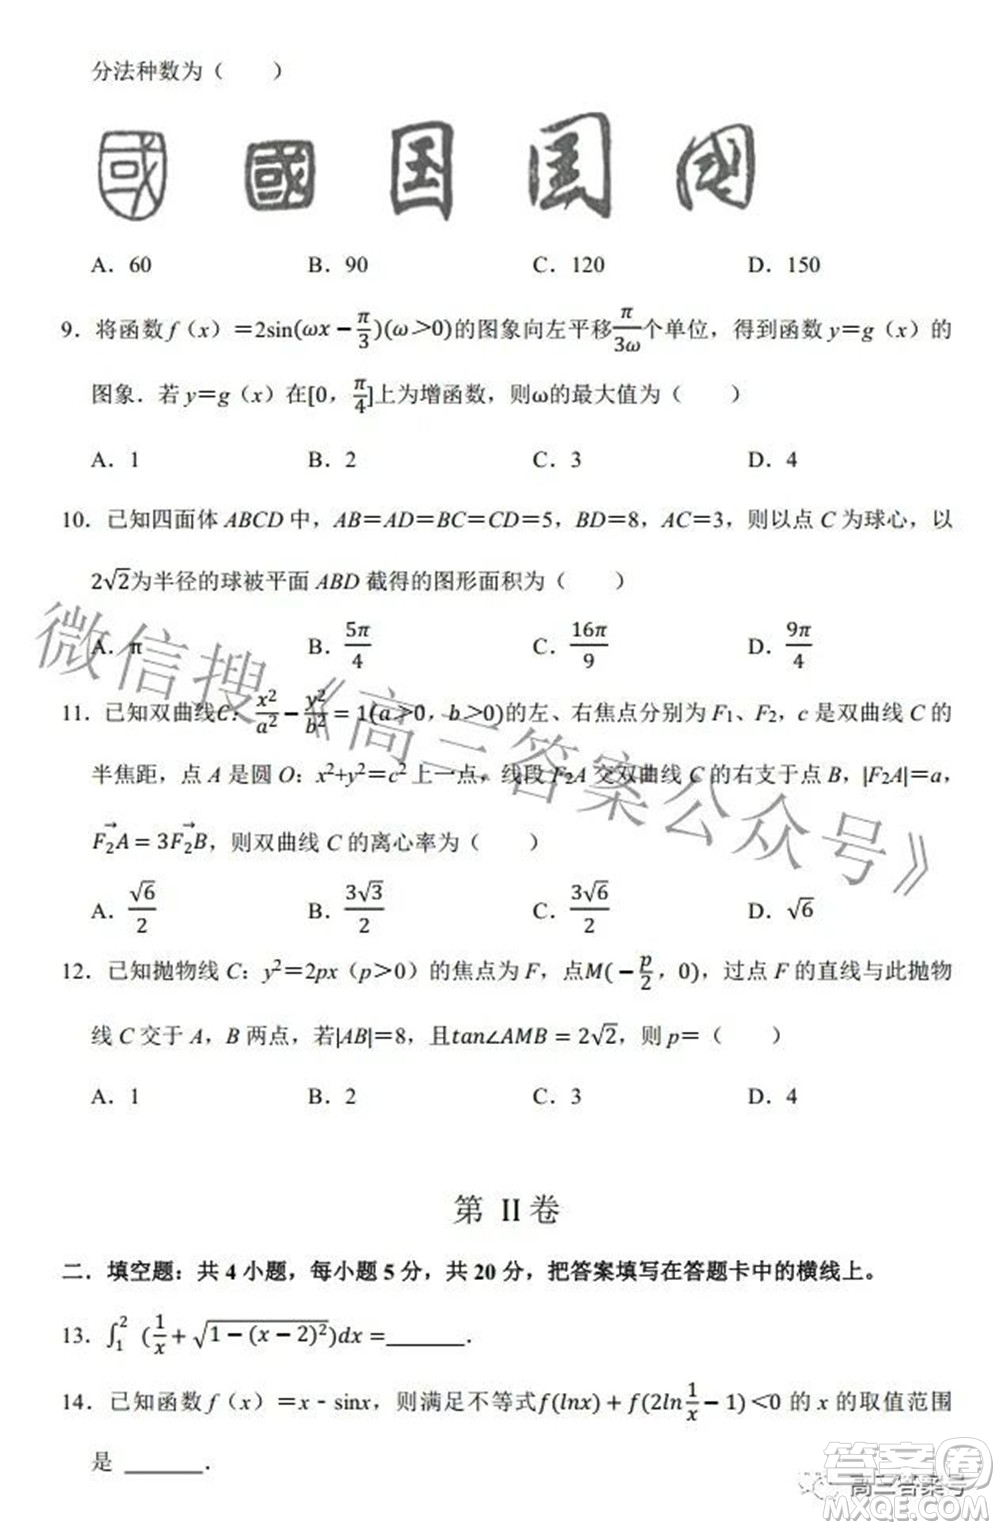 分法种数为（　　）
國 國 国 国 國
A．60 B．90 C．120 D．150
9．将函数 f（x）＝2sin(ωx − π/3)(ω＞0)的图象向左平移π/3ω个单位，得到函数 y＝g（x）的
图象．若 y＝g（x）在[0，π/4]上为增函数，则ω的最大值为（　　）
A．1 B．2 C．3 D．4
10．已知四面体 ABCD 中，AB＝AD＝BC＝CD＝5，BD＝8，AC＝3，则以点 C 为球心，以
2√2为半径的球被平面 ABD 截得的图形面积为（　　）
A．π B．5π/4 C．16π/9 D．9π/4
11．已知双曲线C：x²/a² − y²/b² = 1(a＞0，b＞0)的左、右焦点分别为 F₁、F₂，c 是双曲线 C 的
半焦距，点 A 是圆 O：x²+y²＝c² 上一点，线段 F₂A 交双曲线 C 的右支于点 B，|F₂A|＝a，
F₂A→ = 3F₂B→，则双曲线 C 的离心率为（　　）
A．√6/2 B．3√3/2 C．3√6/2 D．√6
12．已知抛物线 C：y²＝2px（p＞0）的焦点为 F，点M(−p/2，0)，过点 F 的直线与此抛物
线 C 交于 A，B 两点，若|AB|＝8，且tan∠AMB = 2√2，则 p＝（　　）
A．1 B．2 C．3 D．4
第 II 卷
二．填空题：共 4 小题，每小题 5 分，共 20 分，把答案填写在答题卡中的横线上。
13．∫₁² (1/x + √(1 − (x − 2)²))dx =______．
14．已知函数 f（x）＝x﹣sinx，则满足不等式f(lnx) + f(2ln1/x − 1)＜0的 x 的取值范围
是 ______．
微信搜《高三答案公众号》
高三答案号
答案卷
MXQE.COM